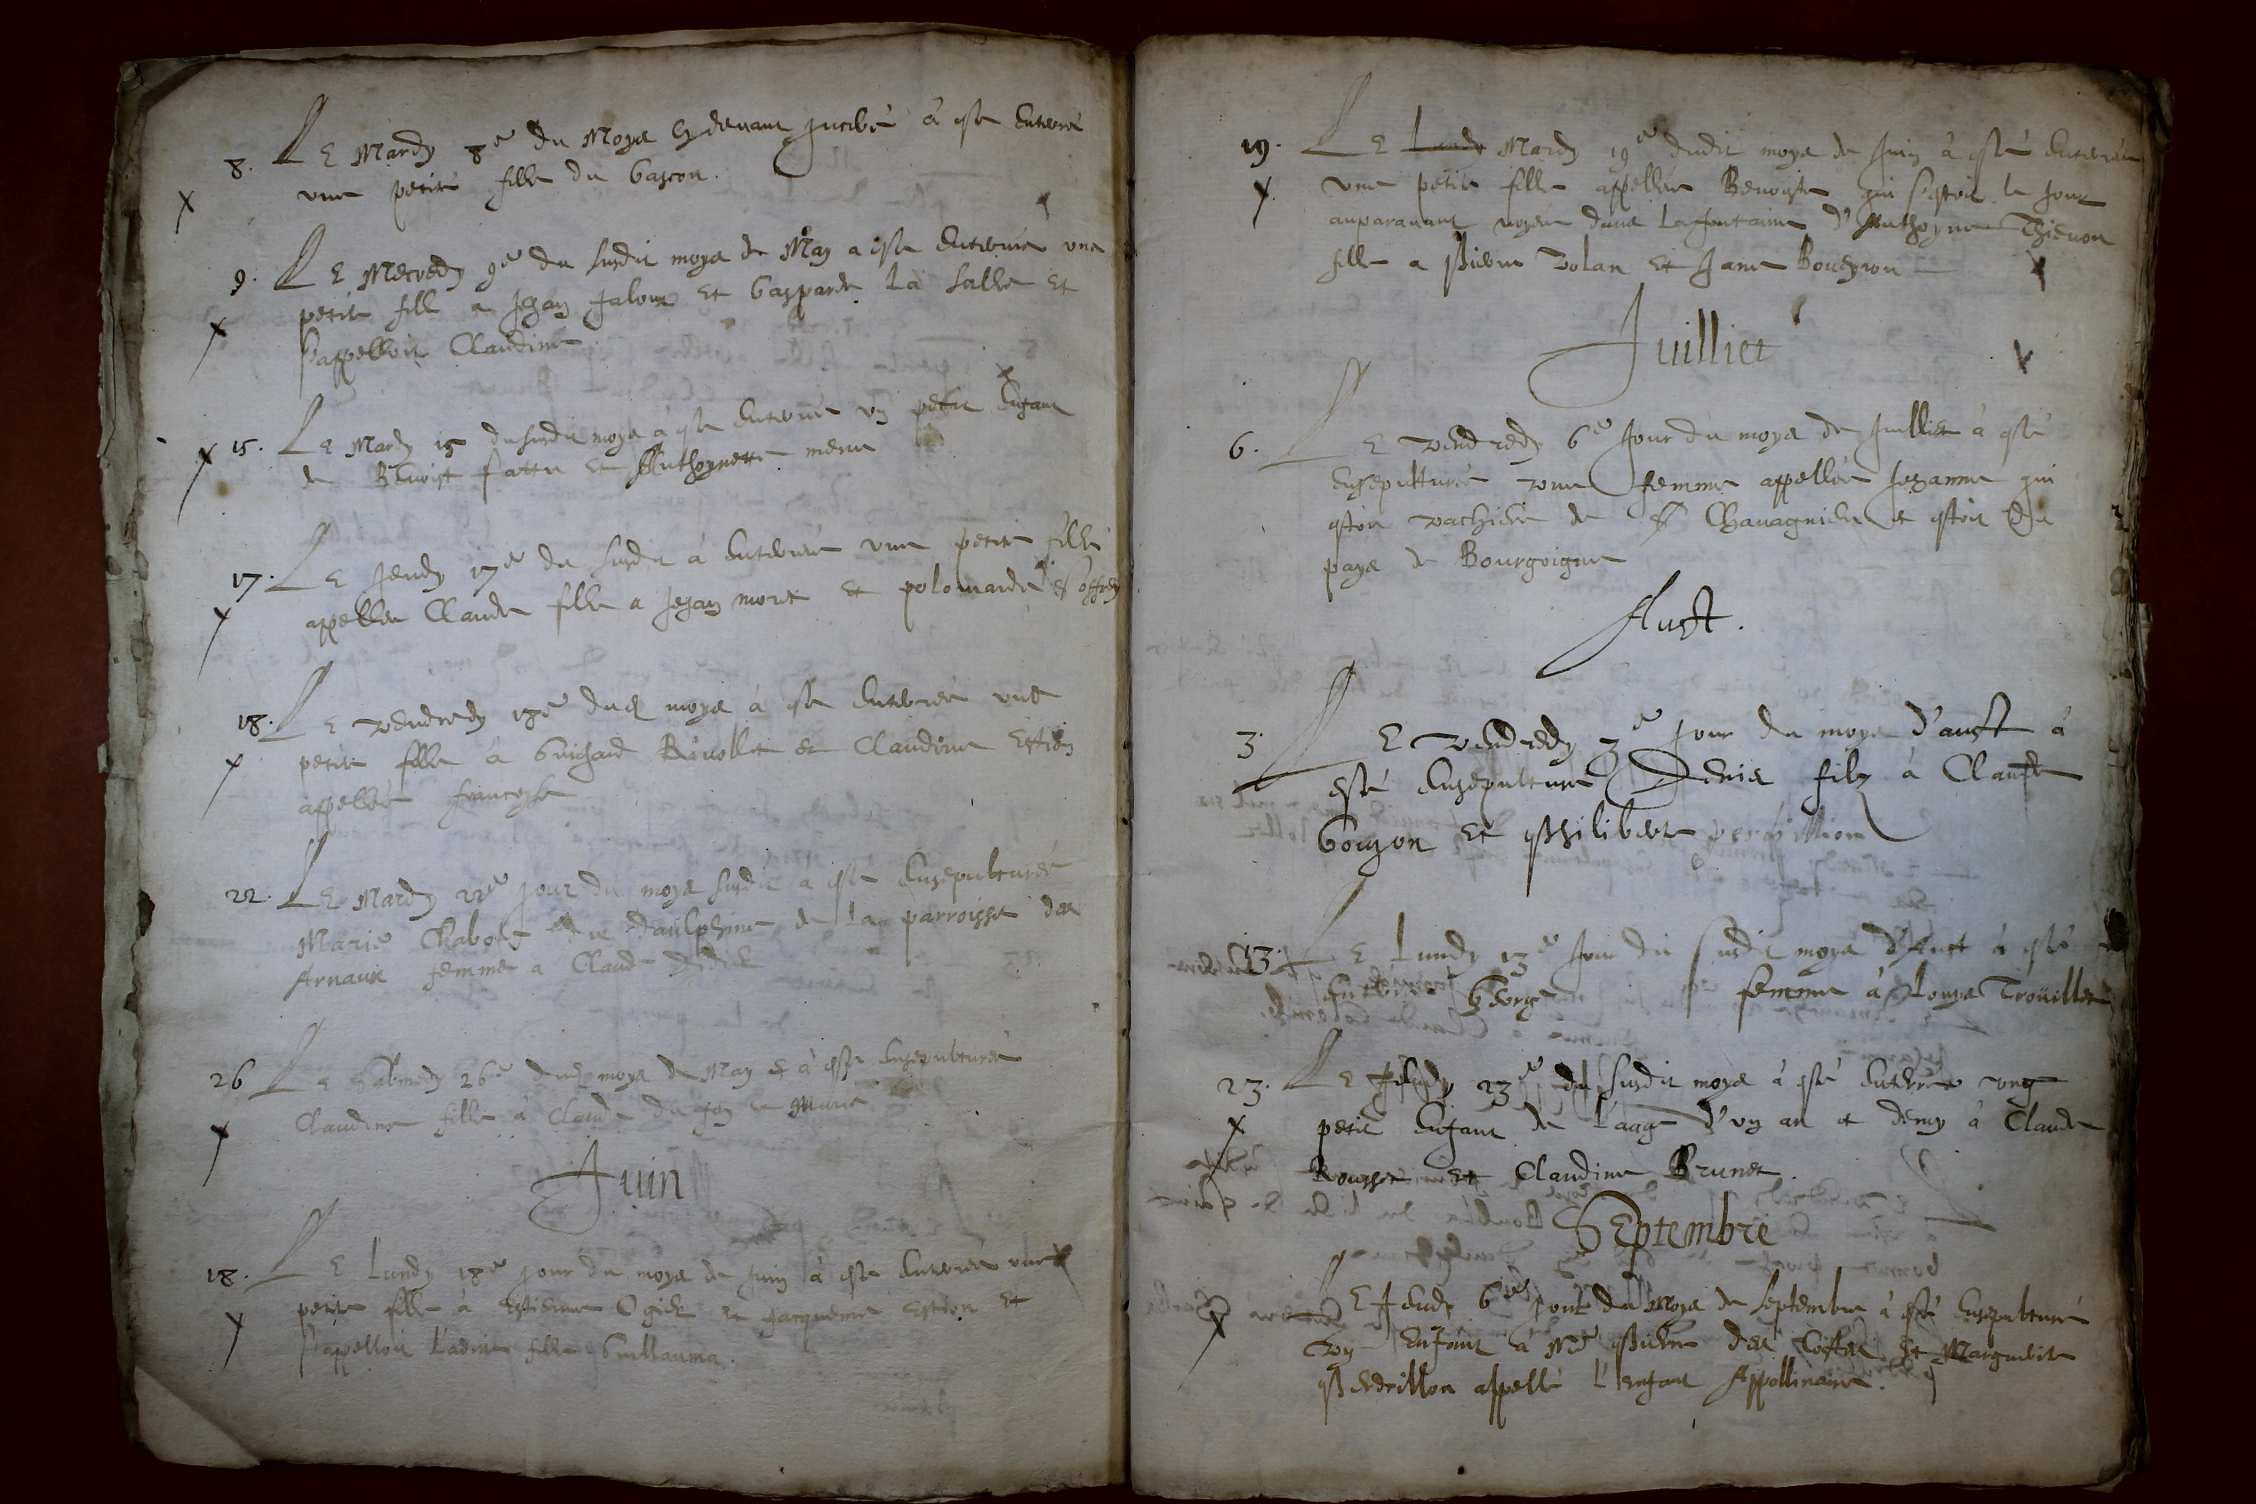 8. LE Mardy 8e du Moys cy devant inscript à esté enterré
une petite fille du Gascon.
9. LE Mecredy 9e du susdit moys de May a esté enterrée une
petite fille a Jehan Jaloux et Gasparde La Salle et
s'appelloit Claudine
15. LE Mardy 15 du susdit moys à esté enterrée un petit enfant
de Benoist fattu et Anthoynette
17. LE Jeudy 17e du susdit à enterrée une petite fille
appellee Claude fille a Jehan et
18. LE Vendredy 18e dud moys à esté enterrée une
petite fille à Guichard Rivollet et Claudine
appellée francoyse
22. LE Mardy 22e jour du moys susdit a esté ensepulturée
Marie Chabot de daulphiné de la parroisse des
Arnaux femme a Claude
26 LE Sabmedy 26e dud moys de May à esté ensepulturée
Claudine fille à Claude et Marie
Juin
18. LE Lundy 18e jour du moys de Juin à esté enterrée une
petite fille à Estienne Ogier et Jacquema et
s'appelloit ladite fille Guillauma.
19. LE Mardy 19e dudit moys de Juin à esté enterrée
une petite fille appellée Benoiste qui s'estoit le jour
auparavant noyée dans la fontaine d'Anthoyne Thievon
fille a Pierre Volan et Jane
Juilliet
6. LE Vendredy 6e Jour du moys de Juilliet à esté
ensepulturée une femme appellée Jehanne qui
estoit vachiere de Chavagnieu et estoit du
pays de Bourgoigne
Aust.
3. LE Vendredy 3e jour du moys d'aust à
esté ensepulturé Denis filz à Claude
Goujon et Philiberte
13. LE Lundy 13e Jour du susdit moys d'Aust à esté
enterrée George femme à Louys Trouillet
23. LE Jeudy 23e du susdit moys à esté enterré ung
petit enfant de l'aage d'un an et demy à Claude
Rousset et Claudine Brunet.
Septembre
LE Jeudy 6e jour du Moys de Septembre à esté ensepulturé
un enfant à Me Pierre des Costes et Marguerite
Perdrillon appellé l'enfant Appollinaire.